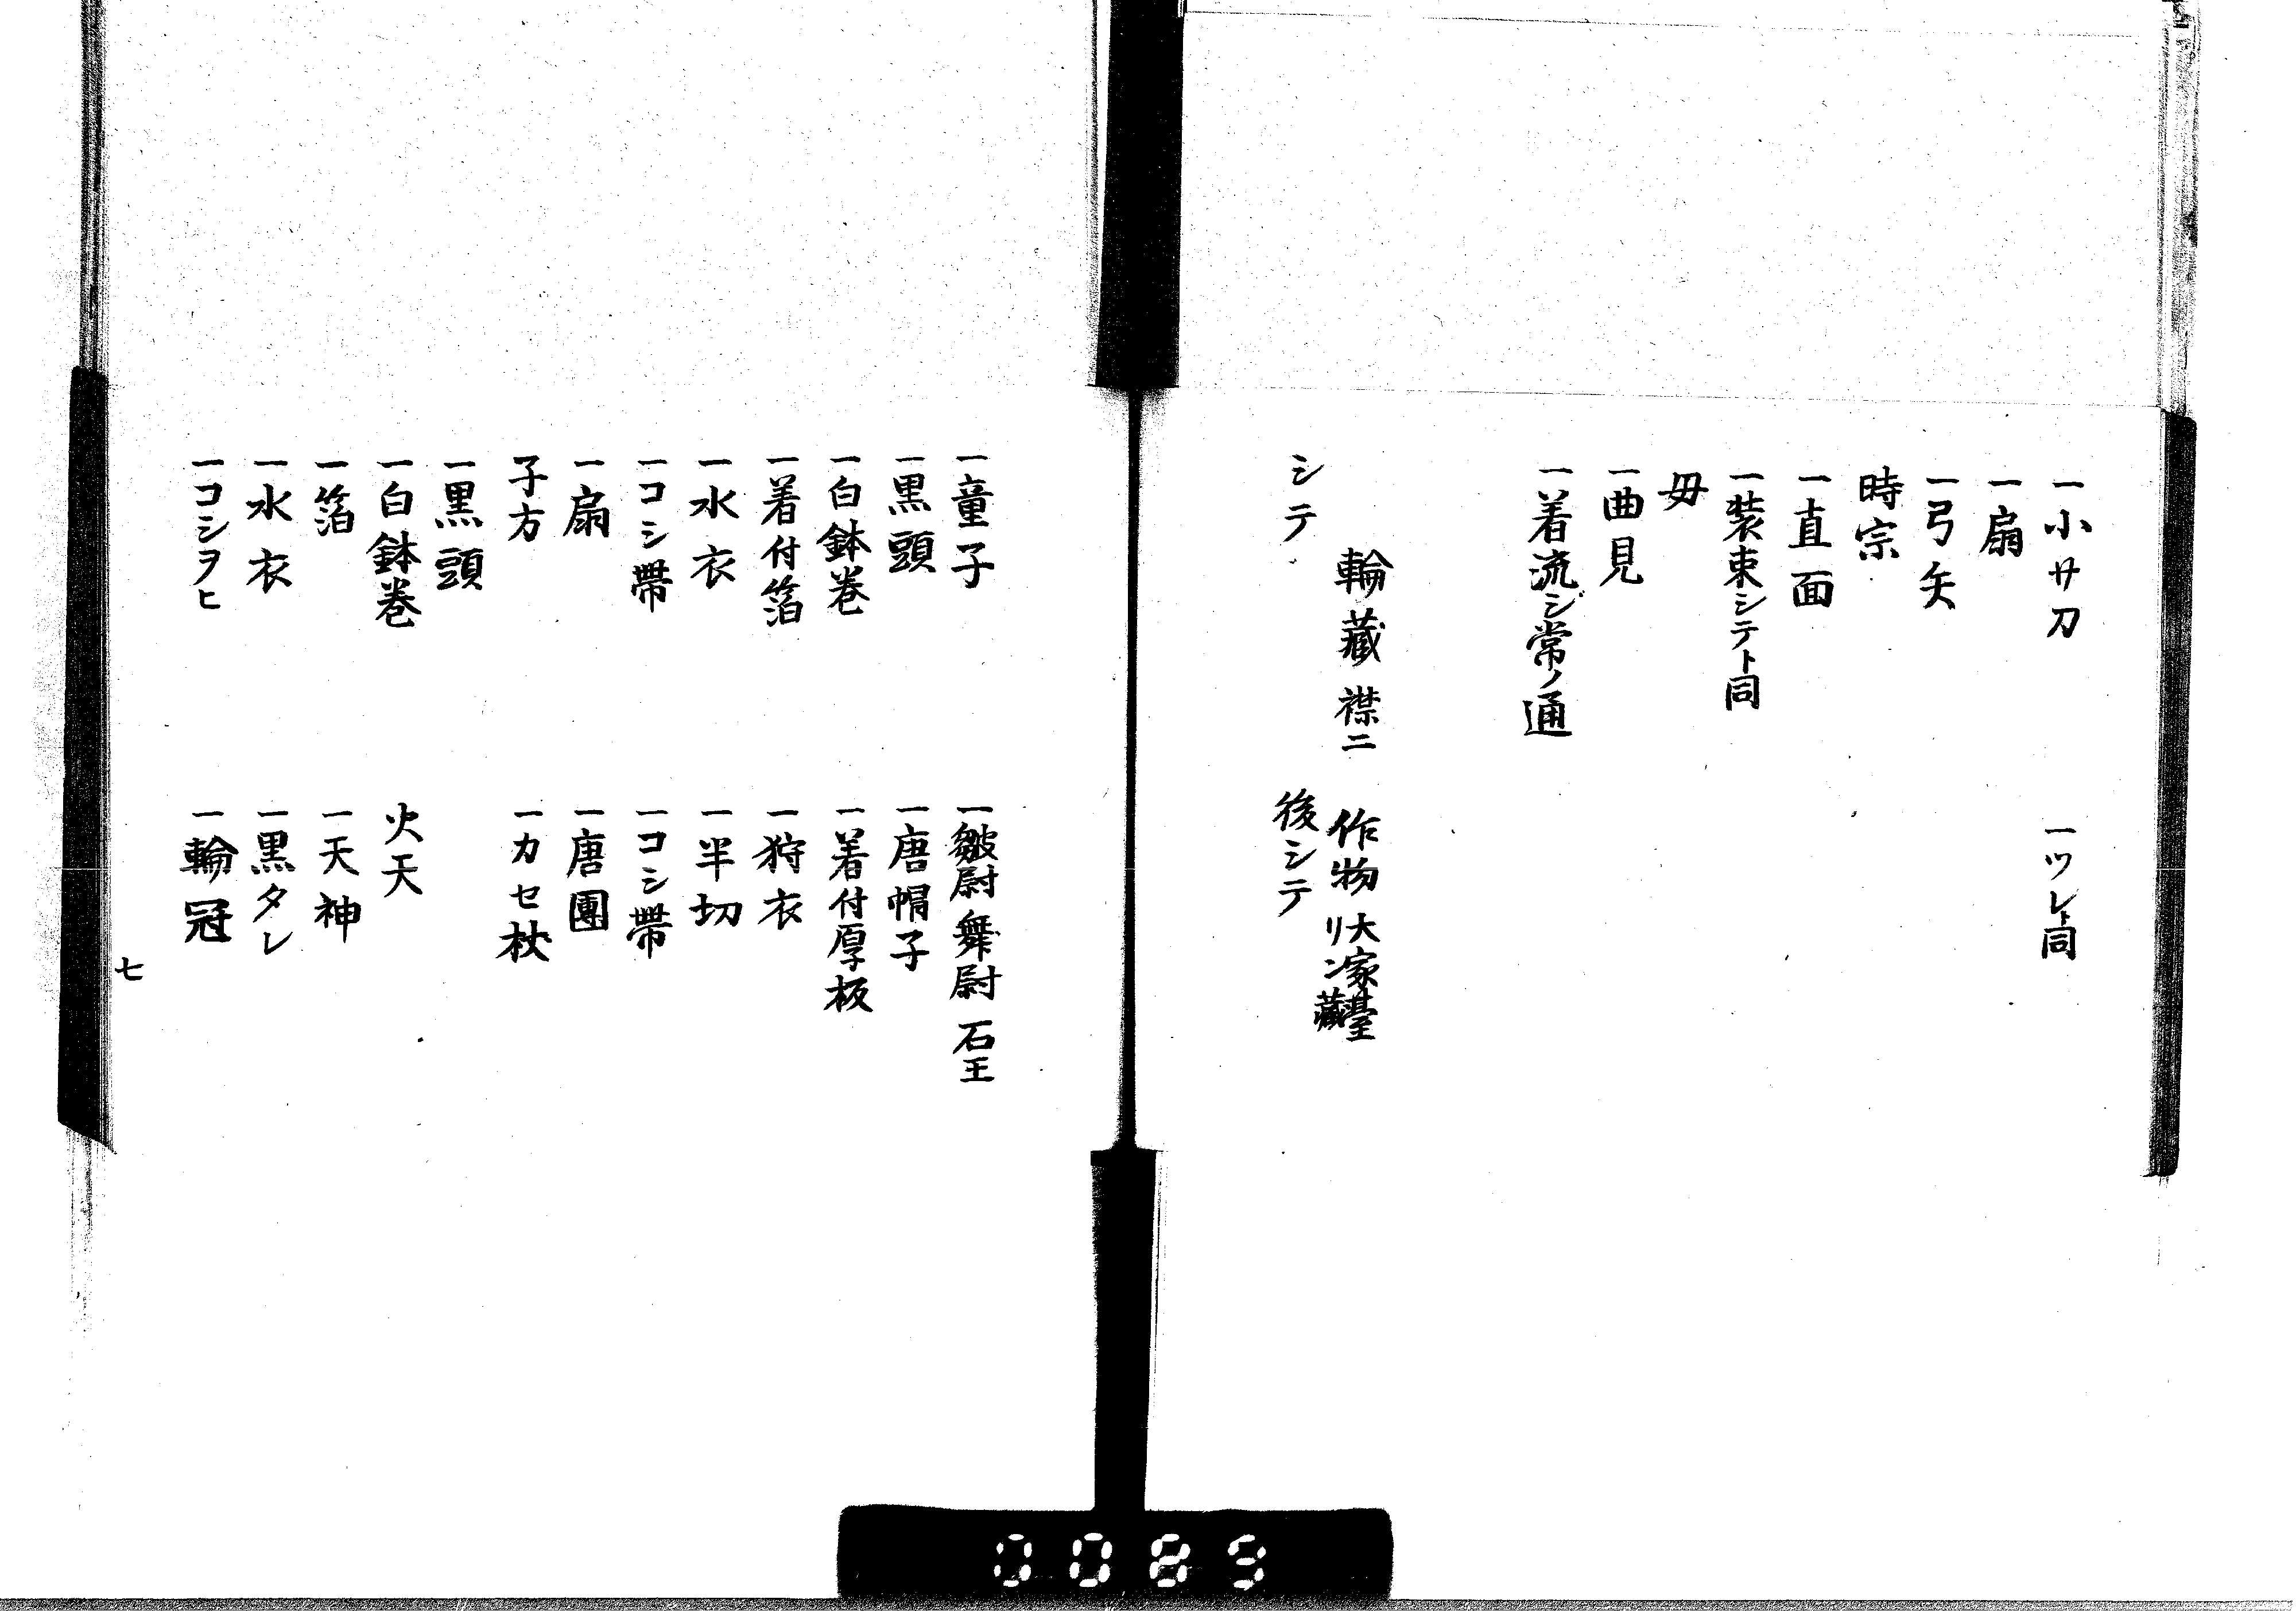 一小サ刀　一ツレト同
一扇
一弓矢
時宗
一直面
一装束シテト同
毋
一曲見
一着流シ常ノ通
輪藏 襟二 作物 大家臺 リン藏
シテ　後シテ
一童子　一皺尉 舞尉 石王
一黒頭　一唐帽子
一白鉢巻　一着付厚板
一着付箔　一狩衣
一水衣　一半切
一コシ帶　一コシ帶
一扇　一唐團
子方　一カセ杖
一黒頭
一白鉢巻　火天
一箔　一天神
一水衣　一黒タレ
一コシヲヒ　一輪冠
七
0089